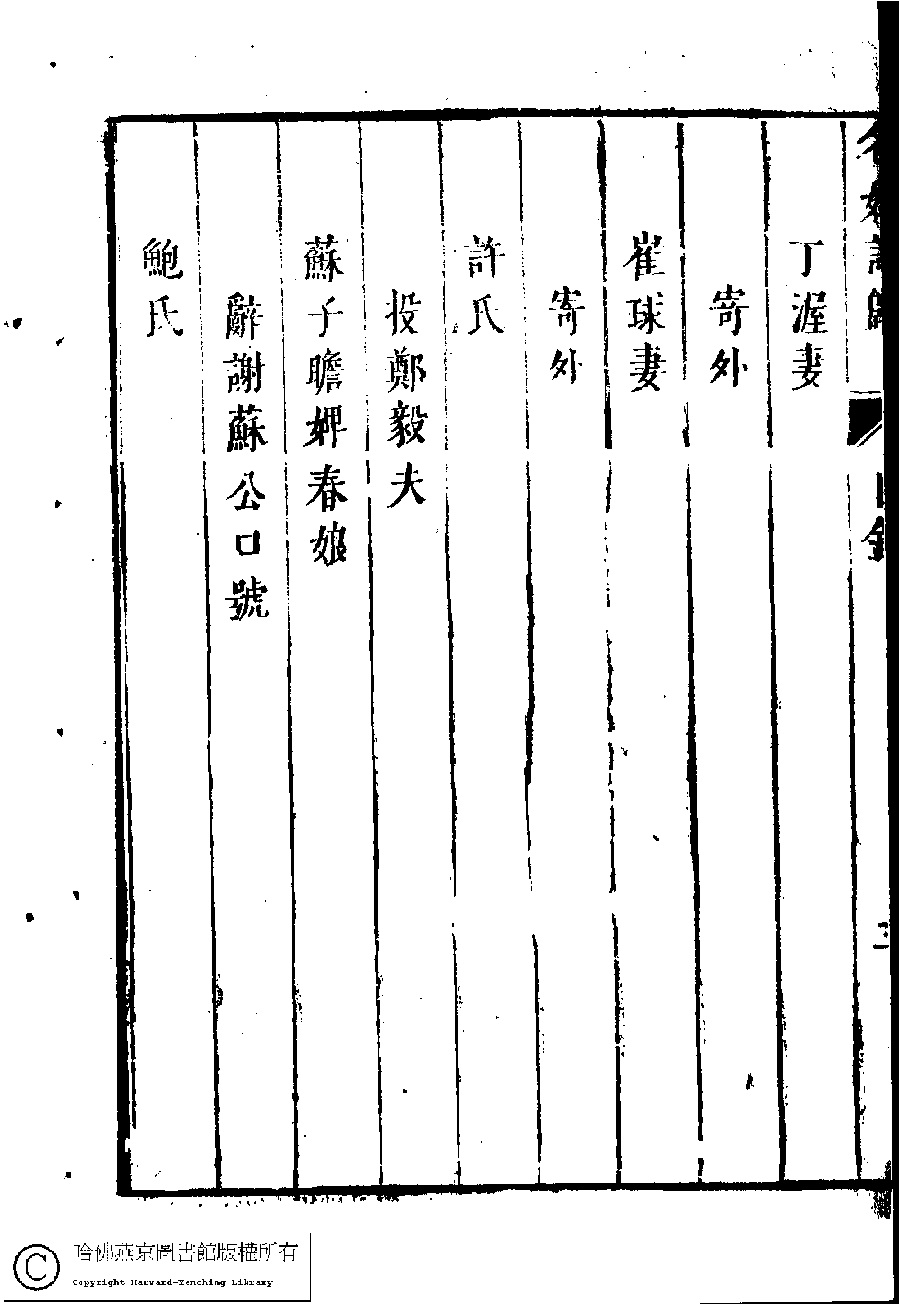 丁渥妻
寄外
崔球妻
寄外
許氏
投鄭毅夫
蘇子瞻婢春娘
辭謝蘇公口號
鮑氏
哈佛燕京圖書館版權所有
Copyright Harvard-Yenching Library